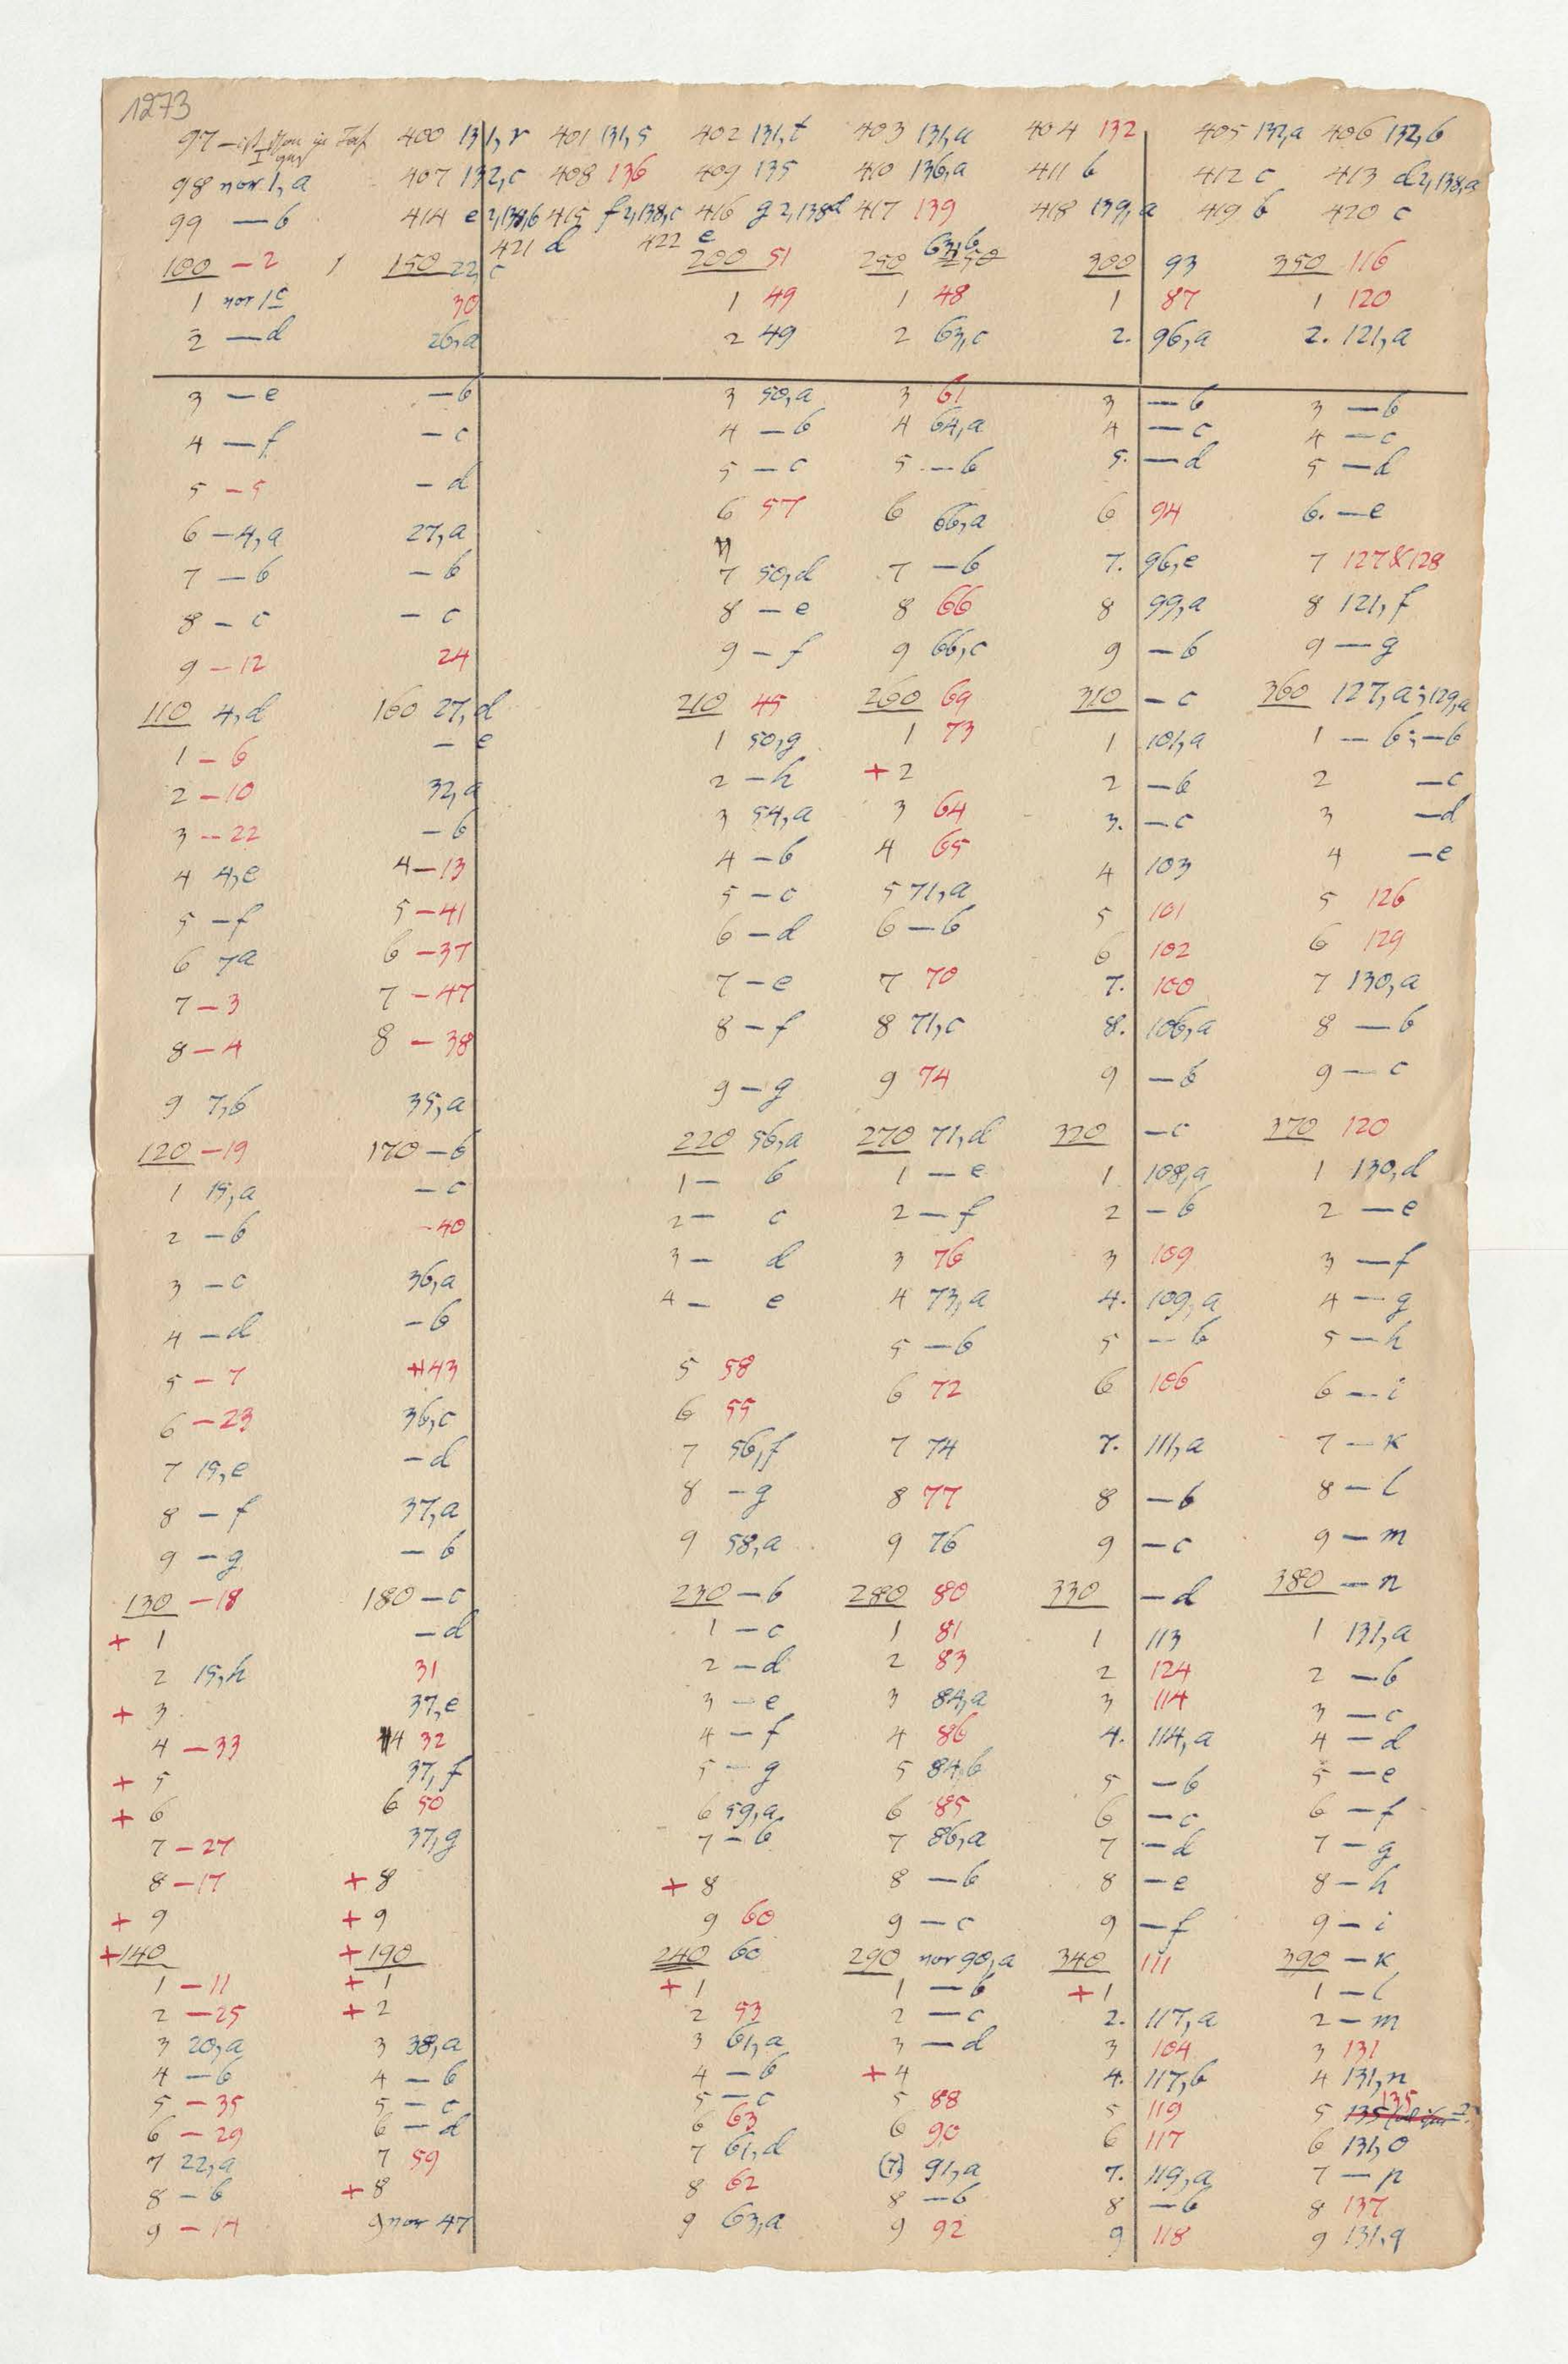 1273
97 — 400 131,r 401 131,s 402 131,t 403 131,a 404 132 405 132,a 406 132,b
98 vor 1,a 407 132,c 408 136 409 135 410 136,a 411 b 412 c 413 d 2,138,a
99 — b 414 e 2,138,b 415 f 2,138,c 416 g 2,138d 417 139 418 139,a 419 b 420 c
421 d 422 e
100 – 2 150 22,c 200 51 250 63,b 300 93 350 116
1 vor 1c 30 1 49 1 48 1 87 1 120
2 — d 26,a 2 49 2 63,c 2. 96,a 2. 121,a
3 — e — b 3 50,a 3 61 3 — b 3 — b
4 — f – c 4 – b 4 64,a 4 — c 4 — c
5 – 5 – d 5 – c 5 — b 5. — d 5 — d
6 – 4,a 27,a 6 57 6 66,a 6 94 6. — e
7 — b – b 7 50,d 7 — b 7. 96,e 7 127&128
8 – c – c 8 — e 8 66 8 99,a 8 121,f
9 – 12 24 9 – f 9 66,c 9 – b 9 — g
110 4,d 160 27,d 210 45 260 69 310 – c 360 127,a; 129,a
1 – 6 — e 1 50,g 1 73 1 101,a 1 — b; — b
2 – 10 32,a 2 – h + 2 2 – b 2 — c
3 – 22 – b 3 54,a 3 64 3. – c 3 — d
4 4,e 4 – 13 4 – b 4 65 4 103 4 — e
5 – f 5 – 41 5 – c 5 71,a 5 101 5 126
6 7a 6 – 37 6 – d 6 – b 6 102 6 129
7 – 3 7 – 47 7 – e 7 70 7. 100 7 130,a
8 – 4 8 – 38 8 – f 8 71,c 8. 106,a 8 — b
9 7,b 35,a 9 – g 9 74 9 – b 9 — c
120 – 19 170 – b 220 56,a 270 71,d 320 – c 370 120
1 15,a – c 1 – b 1 — e 1 108,a 1 130,d
2 – b – 40 2 – c 2 — f 2 – b 2 — e
3 – c 36,a 3 – d 3 76 3 109 3 — f
4 – d – b 4 – e 4 73,a 4. 109,a 4 — g
5 – 7 43 5 58 5 – b 5 – b 5 — h
6 – 23 36,c 6 55 6 72 6 106 6 — i
7 15,e – d 7 56,f 7 74 7. 111,a 7 — k
8 – f 37,a 8 – g 8 77 8 – b 8 — l
9 – g – b 9 58,a 9 76 9 – c 9 — m
130 – 18 180 – c 230 – b 280 80 330 – d 380 — n
+ 1 – d 1 – c 1 81 1 113 1 131,a
2 15,h 31 2 – d 2 83 2 124 2 — b
+ 3 37,e 3 – e 3 84,a 3 114 3 — c
4 – 33 4 32 4 – f 4 86 4. 114,a 4 — d
+ 5 37,f 5 – g 5 84,b 5 – b 5 — e
+ 6 6 50 6 59,a 6 85 6 – c 6 — f
7 – 27 37,g 7 – b 7 86,a 7 – d 7 — g
8 – 17 + 8 + 8 8 — b 8 – e 8 — h
+ 9 + 9 9 60 9 — c 9 – f 9 — i
+ 140 + 190 240 60 290 vor 90,a 340 111 390 — k
1 – 11 + 1 + 1 1 — b + 1 1 — l
2 – 25 + 2 2 53 2 — c 2. 117,a 2 — m
3 20,a 3 38,a 3 61,a 3 — d 3 104 3 131
4 – b 4 – b 4 – b + 4 4. 117,b 4 131,n
5 – 35 5 – c 5 – c 5 88 5 119 5 135
6 – 29 6 – d 6 63 6 90 6 117 6 131,o
7 22,a 7 59 7 61,d (7) 91,a 7. 119,a 7 — p
8 – b + 8 8 62 8 — b 8 – b 8 137
9 – 14 9 vor 47 9 63,a 9 92 9 118 9 131,q